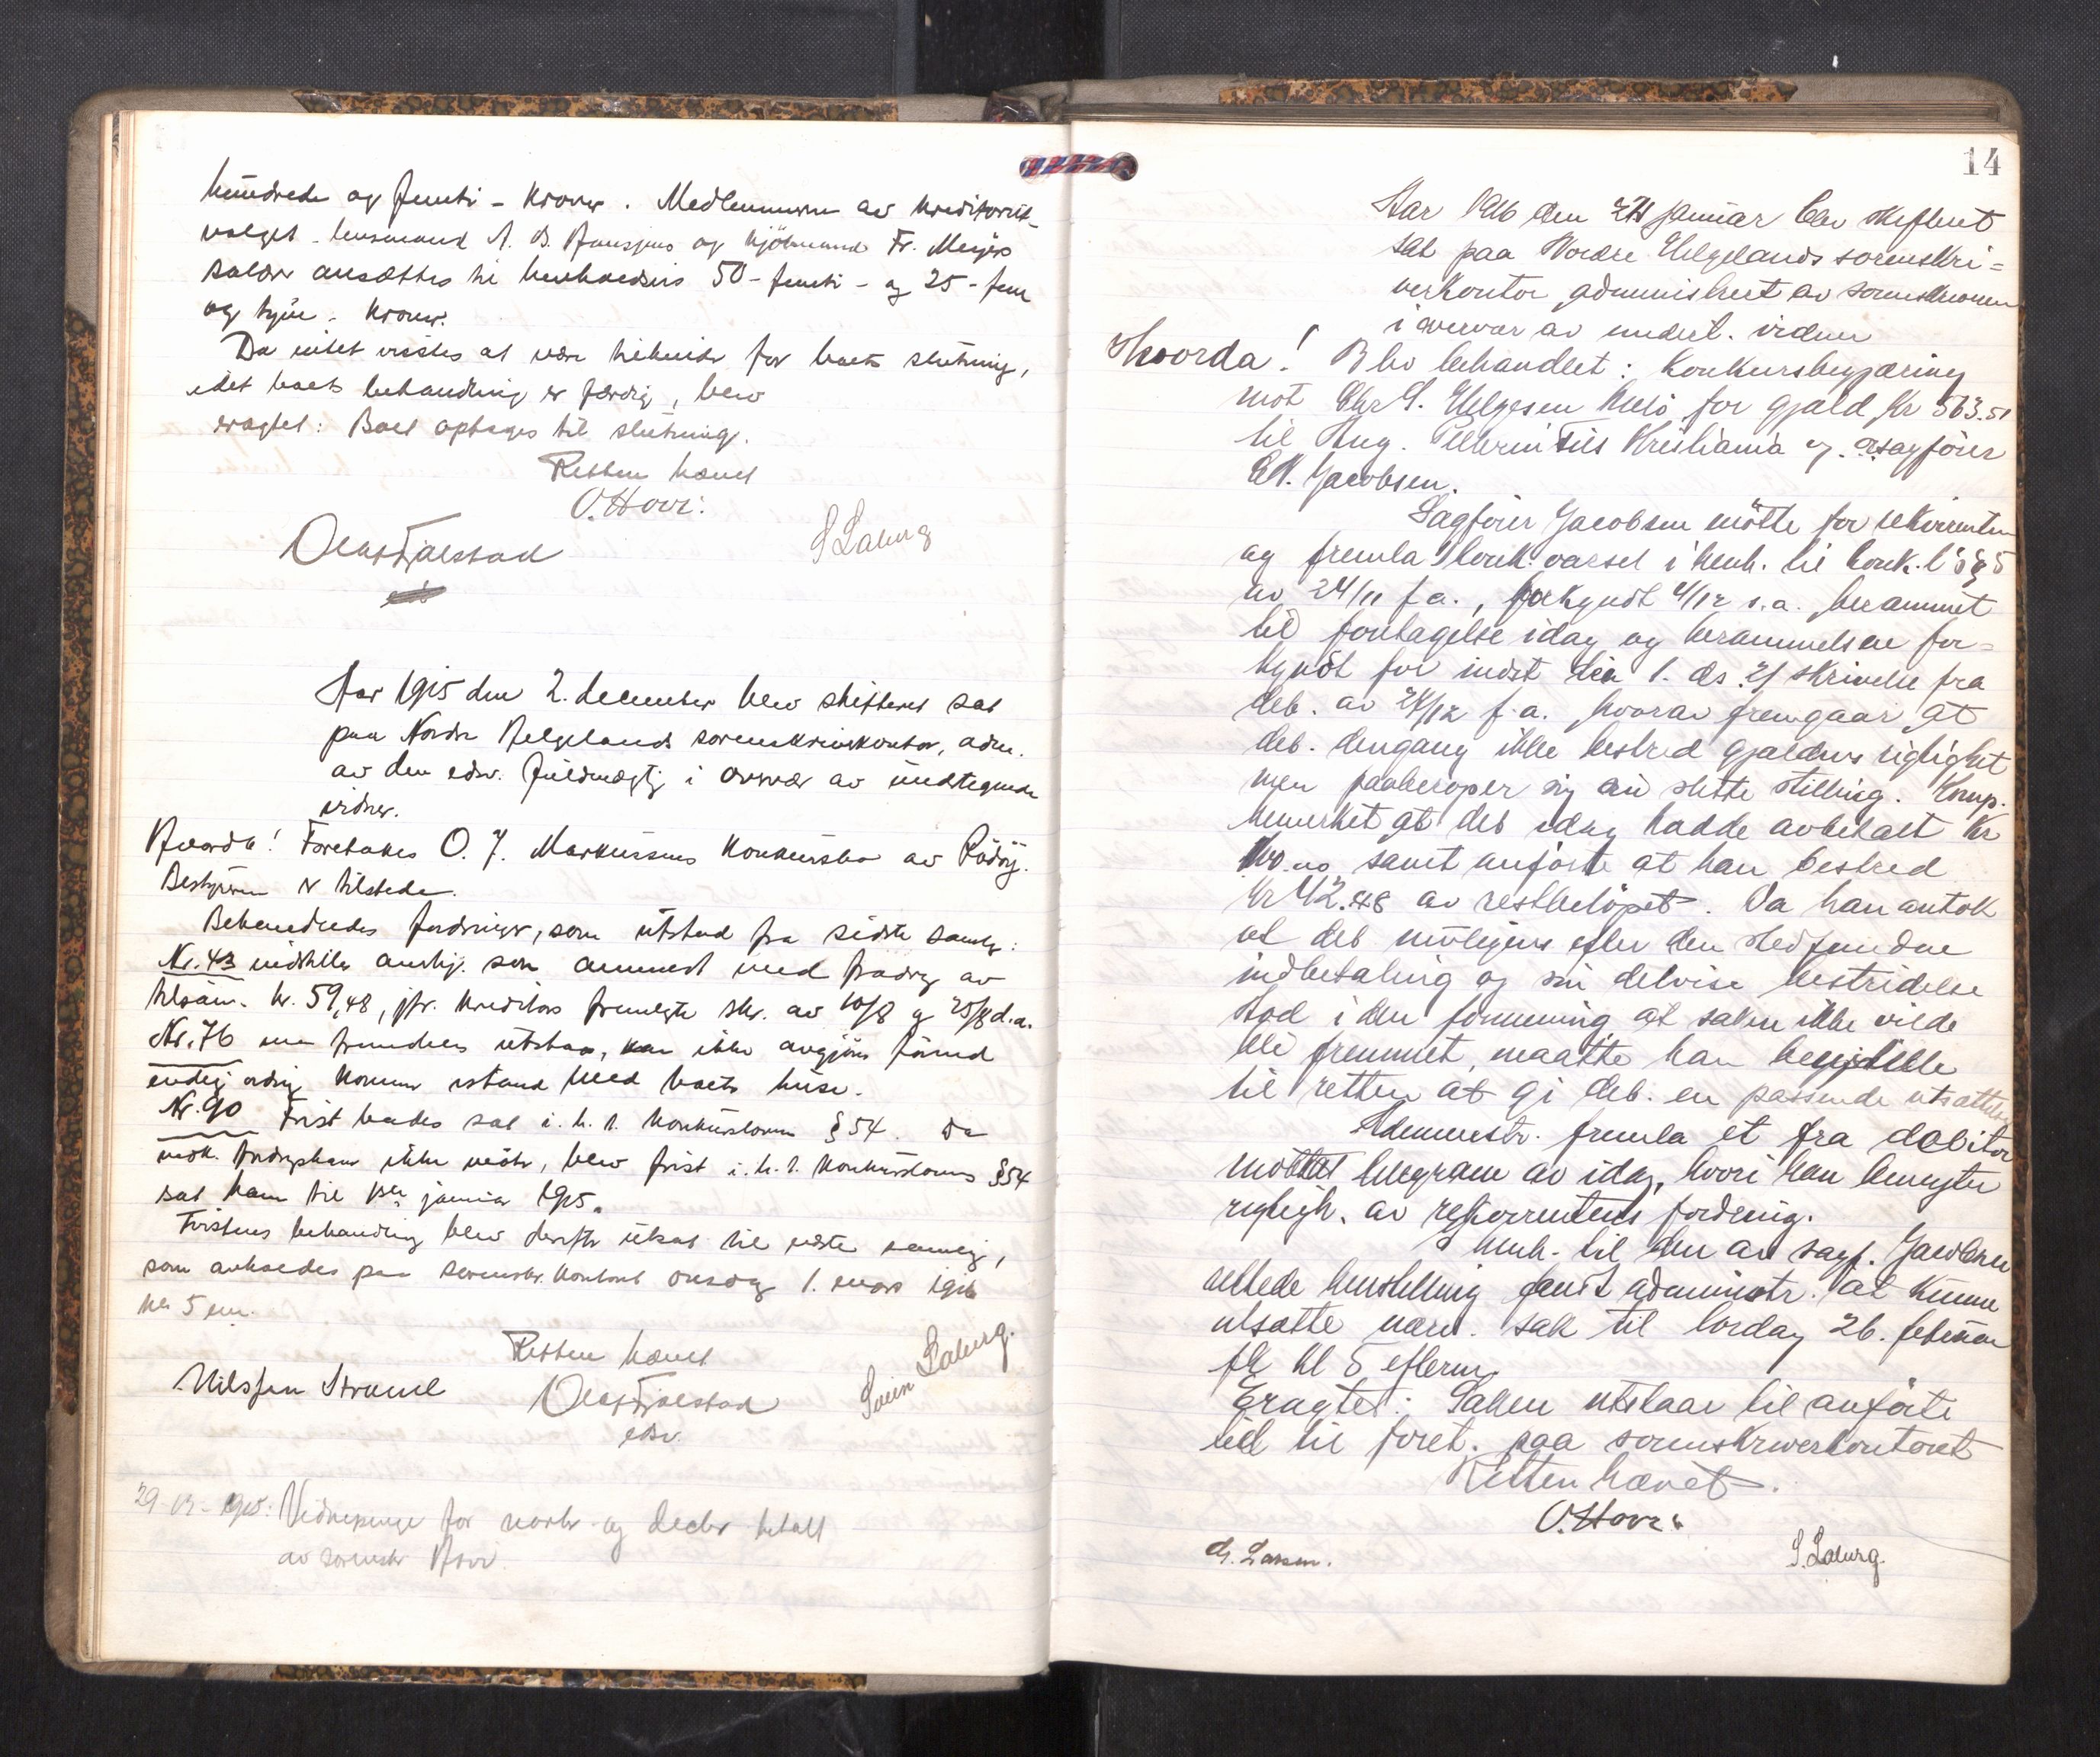 hundrede og femti - kroner. Medlemmerne av kreditorut-
valget lensmand A. B. og kjöbmand Fr.
salær ansættes til henholdsvis 50 - femti - og 25 - fem
og tyve - kroner.
Da intet vistes at være tilhinder for boets slutning,
idet boets behandling er færdig, blev
eragtet: Boet optages til slutning.
Retten hævet
O. Hovr:
Olaf Fjalstad
S Laberg
Aar 1915 den 2. december blev skifteret sat
paa Nordre Helgelands sorenskriverkontor, adm.
av den edsv. fuldmægtig i overvær av undertegnede
vidner.
Hvorda! Foretokes O. J. Markussens konkursbo av Rödöy.
Bestyreren er tilstede.
Behandledes fordringer, som utstod fra sidste samling:
Nr. 43 indstilles som anmeldt med fradrag av
kr. 59,48, jfr. kreditors fremlagte skr. av 10/8 og 25/8 d.a.
Nr. 76 maa fremdeles utstaa, kan ikke avgjöres förend
endelig ordning kommer istand med boets huse.
Nr. 90 Frist bades sat i. h. t. konkursloven § 54. Da
vedk. fordringshaver ikke mötte, blev frist i. h. t. konkurslovens § 54
sat ham til januar 1915.
Tvistens behandling blev derefter utsat til næste samling,
som avholdes paa sorenskr. kontoret onsdag 1. mars 1916
kl 5 em.
Retten hævet
Nils Jan Straand
Olaf Fjalstad
edsv.
Svein Laberg.
29-12-1915: Vidnepenge for novbr. og decbr. betalt
av sorenskr Hovr
14
Aar 1916 den 24 januar blev skifteret
sat paa Nordre Helgelands sorenskri=
verkontor administreret av sorenskriveren
i overvær av undert. vidner
Hvorda! Blev behandlet: Konkursbegjæring
mot Chr S. Helgesen Melö for gjæld kr 563.51
til Aug. Pellerin Fils Kristiania v. orsagförer
E K. Jacobsen.
Sagförer Jacobsen mötte for rekvirenten
og fremla 1 konk. varsel i henh. til konk.l's § 5
av 24/11 f.a., forkyndt 4/12 s.a. berammet
til foretagelse idag og berammelsen for=
kyndt for indst den 1. ds. 2/ skrivelse fra
deb. av 24/12 f.a. hvorav fremgaar at
deb. dengang ikke bestred gjældens rigtighet
men paaberoper sig sin slette stilling. Komp.
bemerket at deb idag hadde avbetalt kr
samt anförte at han bestred
kr 42.48 av restbelöpet. Da han antok
at deb muligens efter den stedfundne
indbetaling og sin delvise bestridelse
stod i den formening at saken ikke vilde
bli fremmet, maatte han henstille
til retten at gi deb. en passende utsættelse
Administr. fremla et fra debitor
mottat telegram av idag, hvori han benegter
rigtigh. av rekvirentens fordring.
I henh. til den av sagf. Jacobsen
rettede henstilling fandt administr. at kunne
utsætte nærv. sak til lördag 26. februar
fk kl 5 efterm.
Eragtet: Saken utstaar til anförte
tid til foret. paa sorenskriverkontoret
Retten hævet.
O. Hovr:
G. Larsen.
S. Laberg.